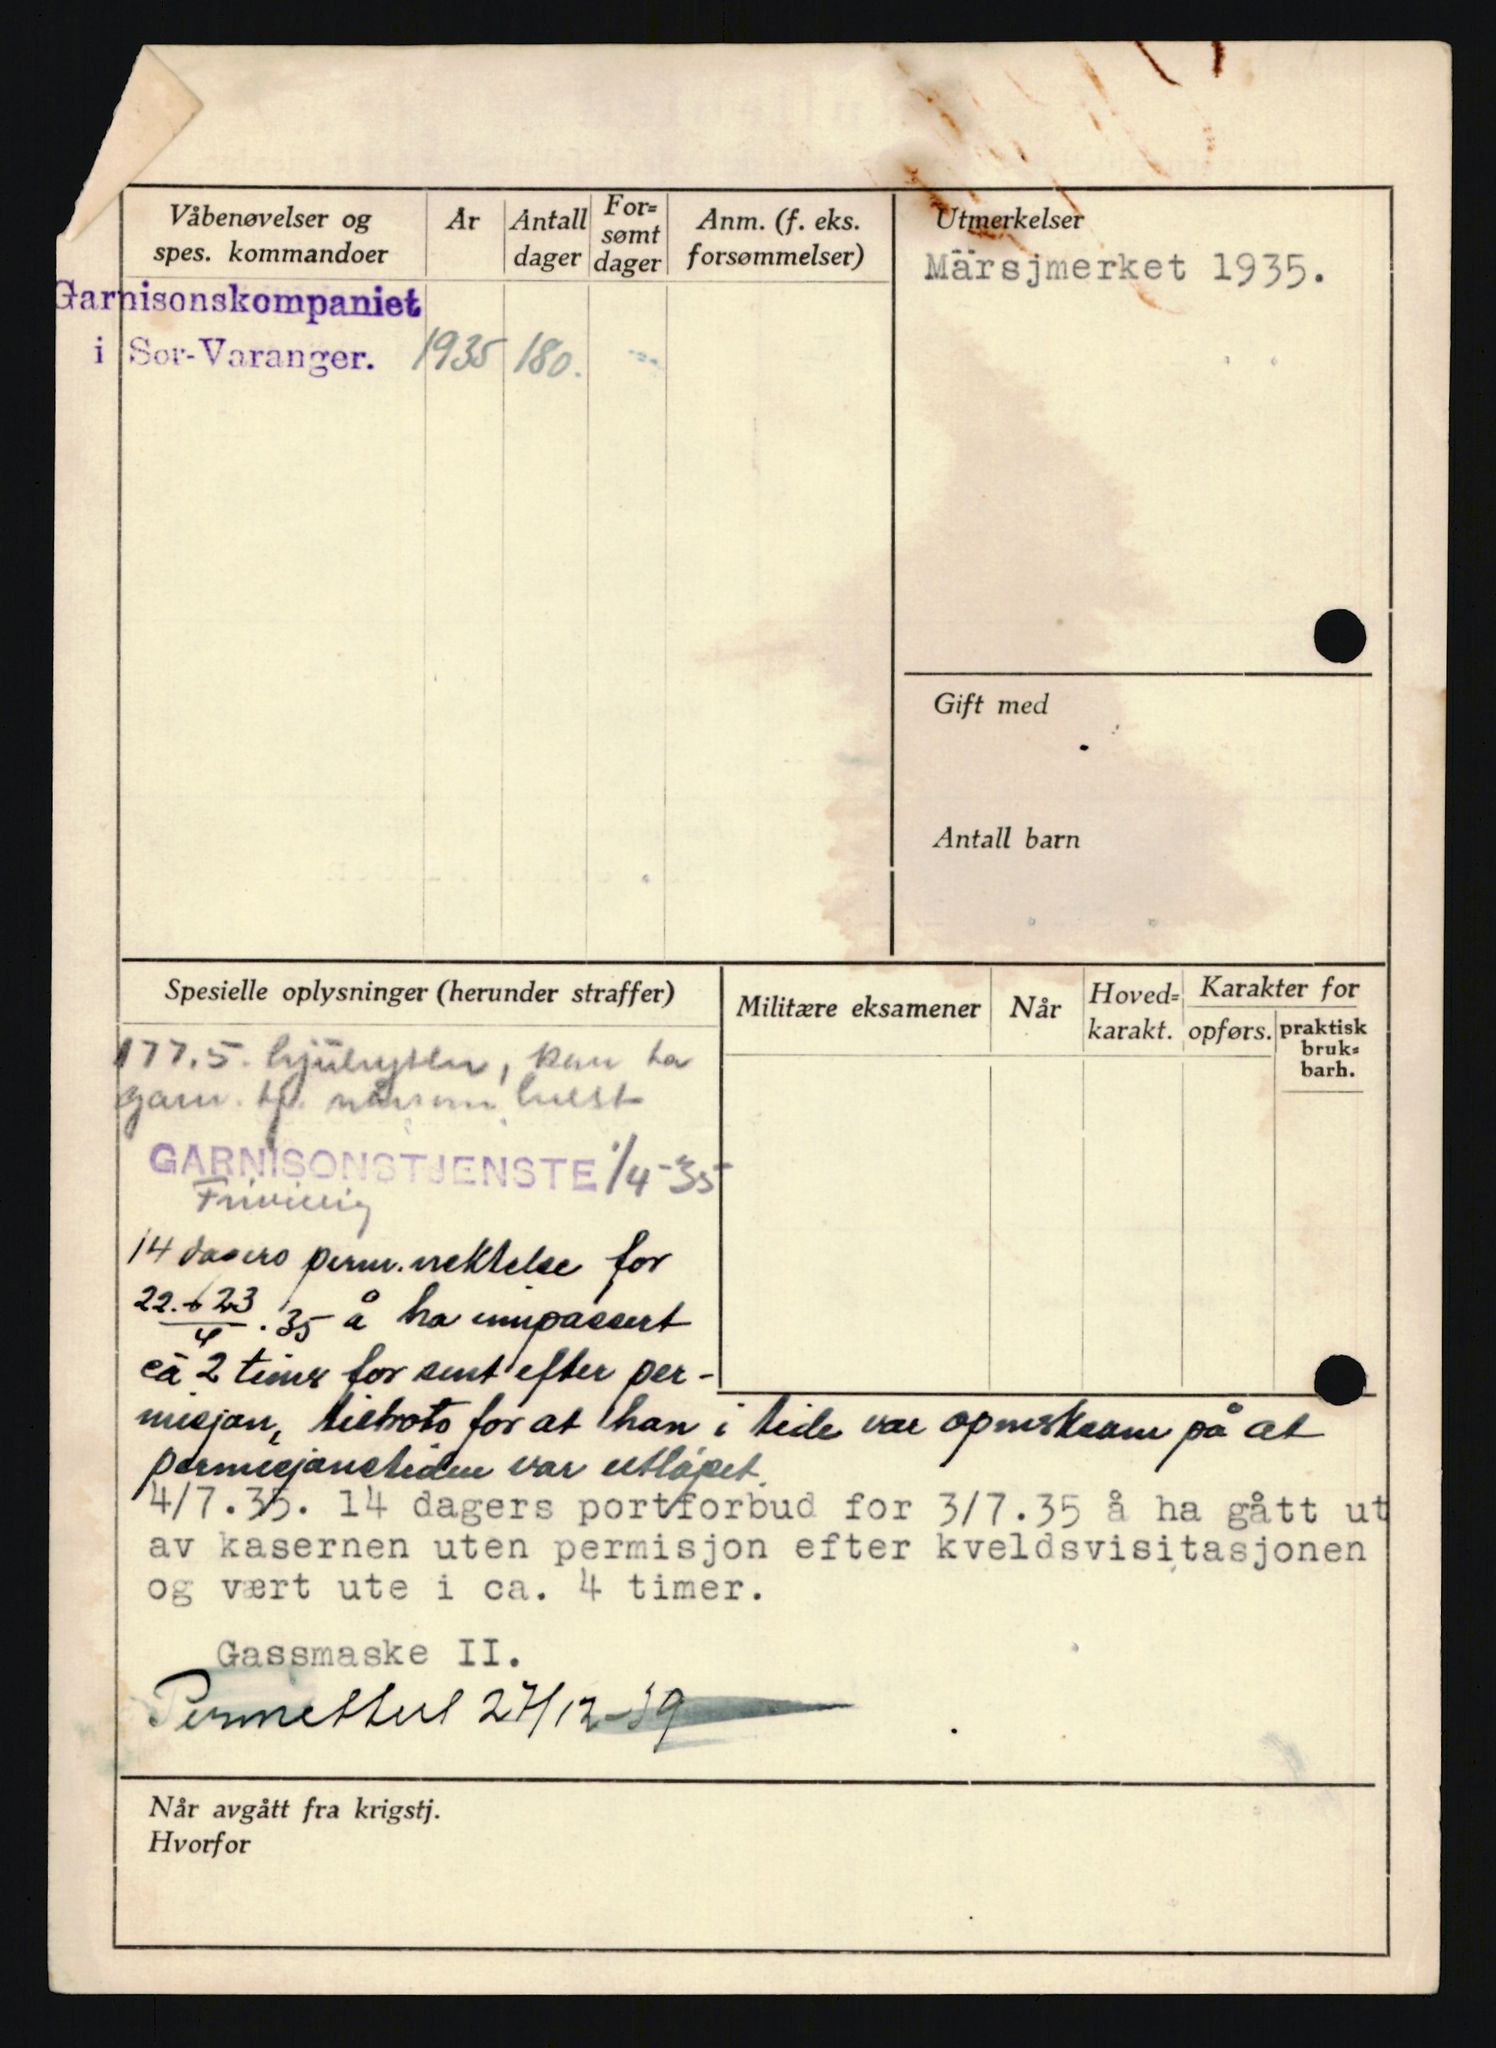 Våbenøvelser og
spes. kommandoer
År
Antall
dager
For=
sømt
dager
Anm. (f. eks.
forsømmelser)
Garnisonskompaniet
i Sør-Varanger. 1935 180.
Utmerkelser
Märsjmerket 1935.
Gift med
Antall barn
Spesielle oplysninger (herunder straffer)
Militære eksamener
Når
Hoved=
karakt.
Karakter for
opførs.
praktisk
bruk=
barh.
177.5. kan ta
garn. tj. nårsom helst
GARNISONSTJENSTE 1/4-35
Frivillig
14 dagers perm. nektelse for
22.-23/4.35 å ha innpassert
ca 2 timer for sent efter per-
misjon, tiltross for at han i tide var opmerksam på at
permisjonstiden var utløpet.
4/7.35. 14 dagers portforbud for 3/7.35 å ha gått ut
av kasernen uten permisjon efter kveldsvisitasjonen
og vært ute i ca. 4 timer.
Gassmaske II.
Permittert 27/12-39
Når avgått fra krigstj.
Hvorfor